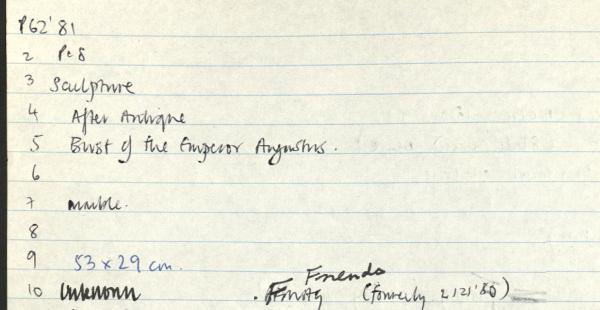 P62'81
2 Pe8
3 Sculpture
4 After Antique
5 Bust of the Emperor Augustus.
6
7 marble.
8
9 53 x 29 cm.
Friends
10 Unknown (formerly 2121'80)